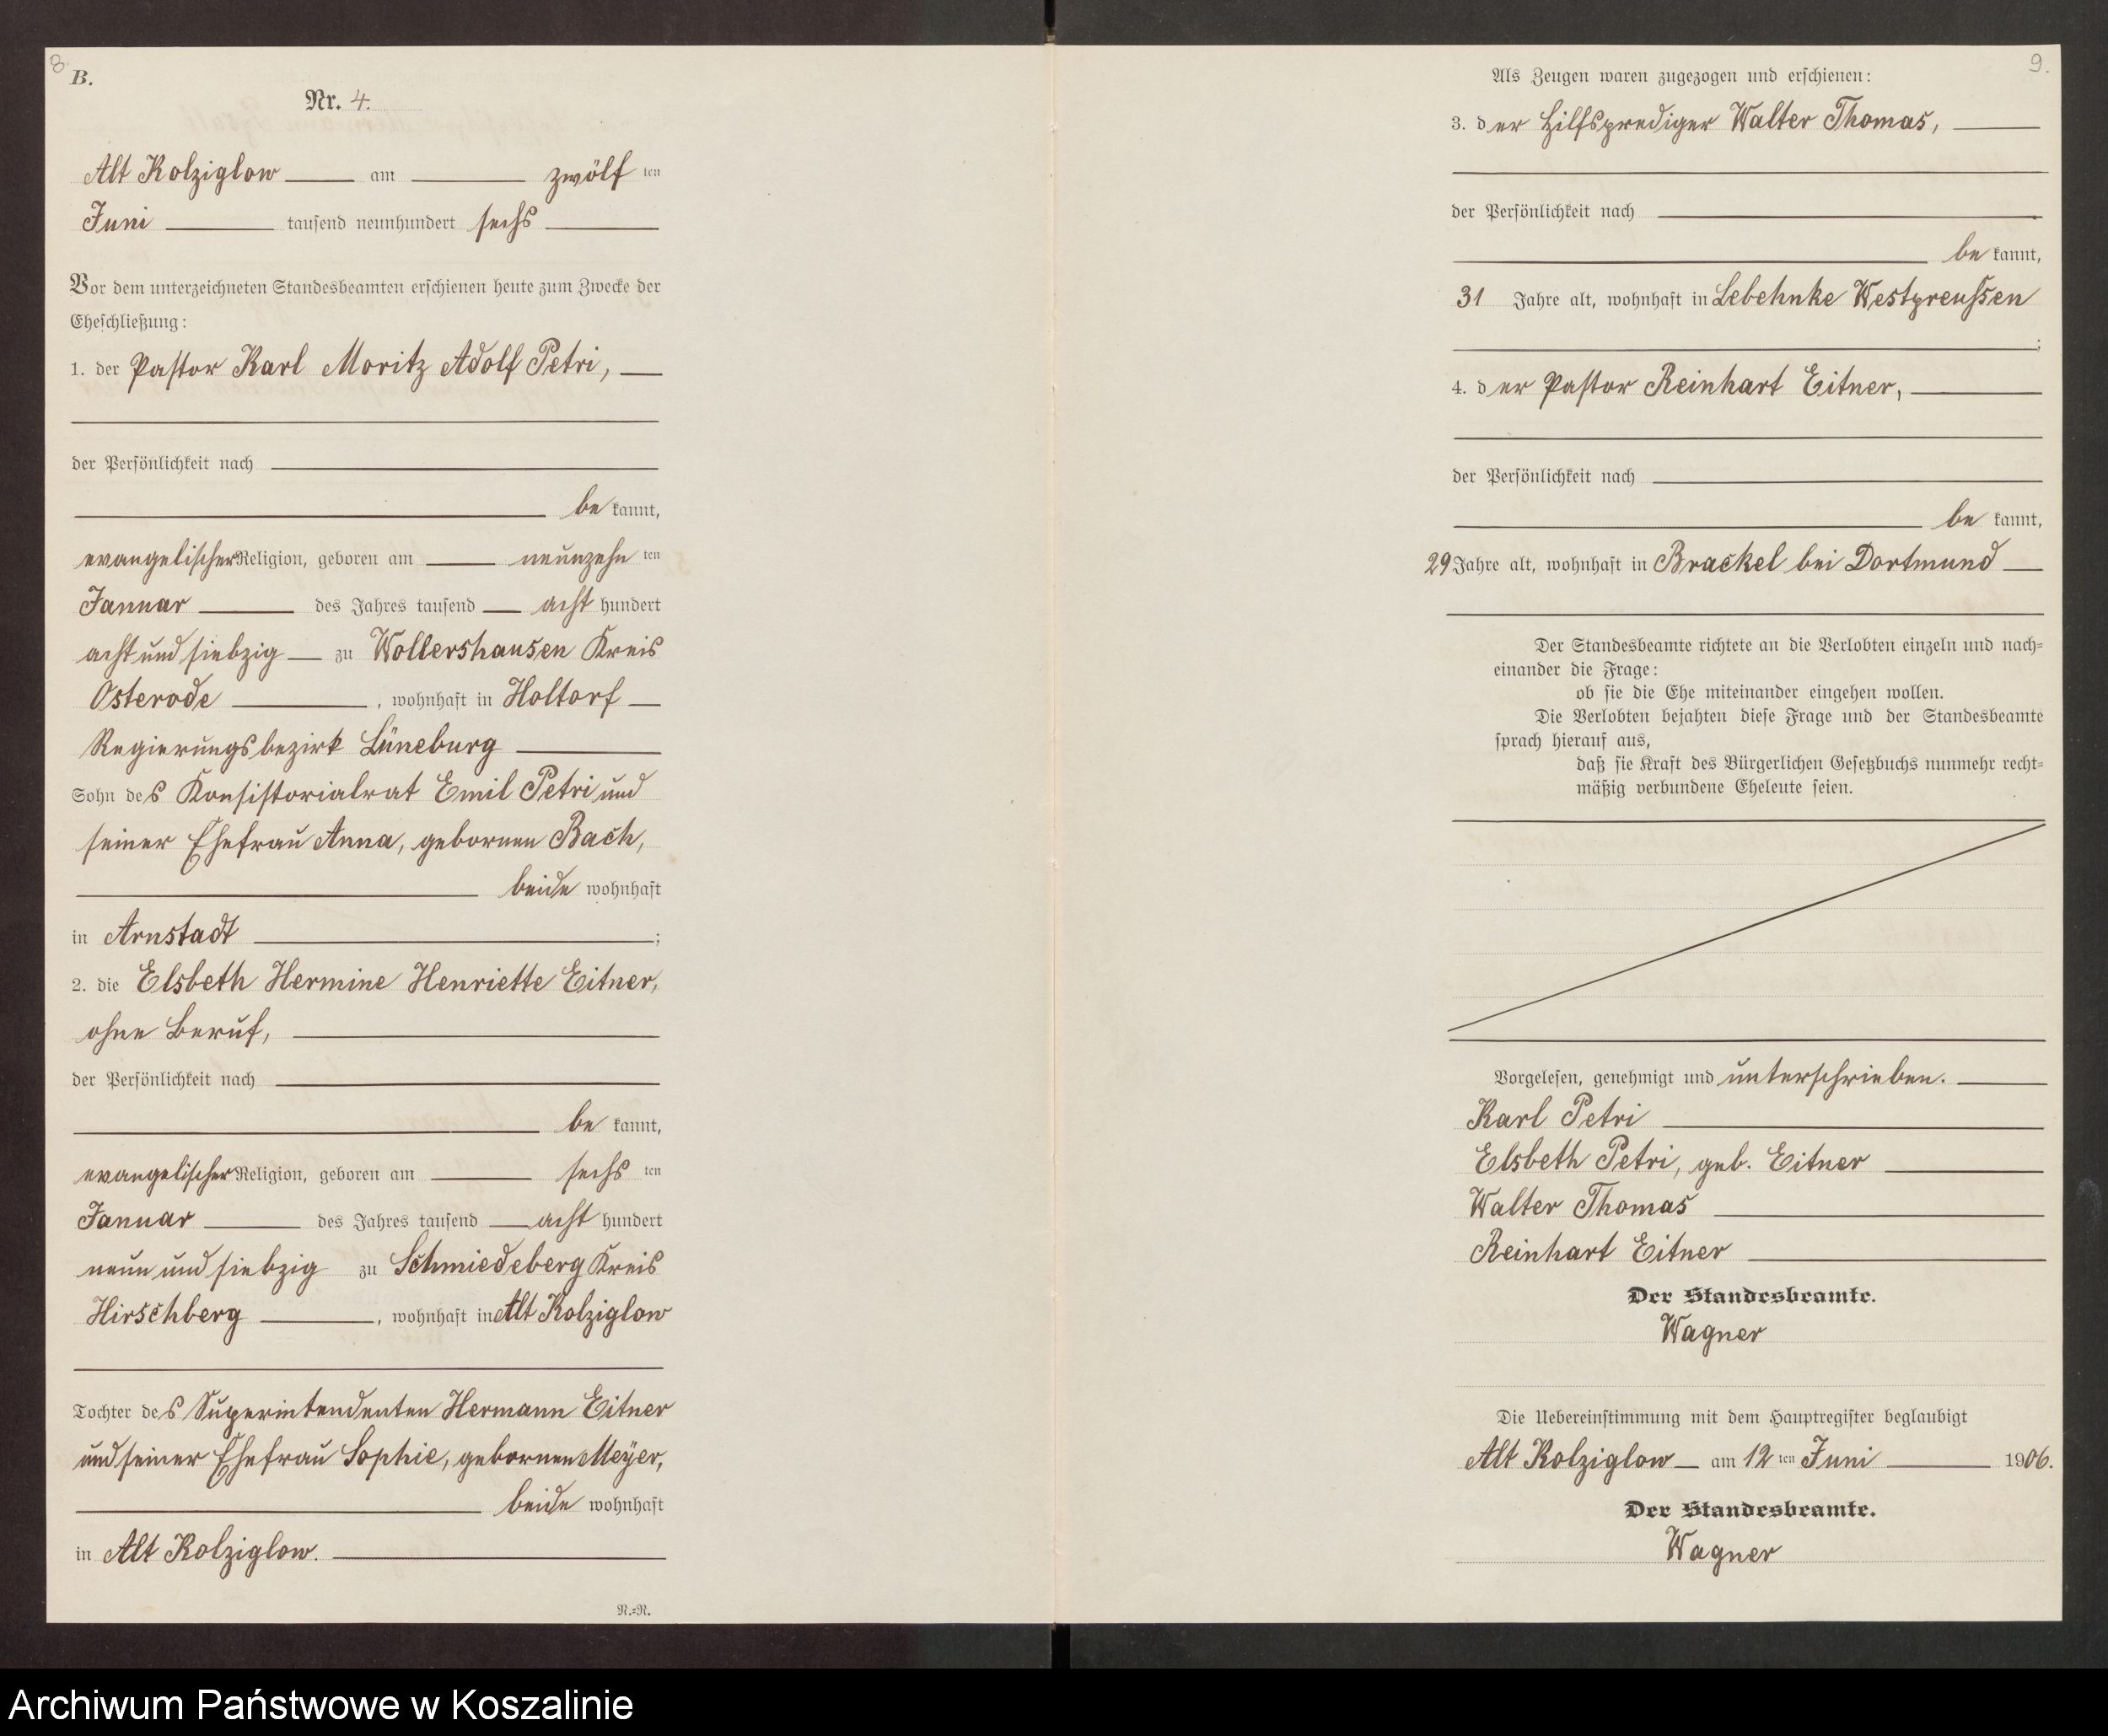 8.
B.
Nr. 4.
Alt Kolziglow am zwölf ten
Juni tausend neunhundert sechs
Vor dem unterzeichneten Standesbeamten erschienen heute zum Zwecke der
Eheschließung:
1. der Pastor Karl Moritz Adolf Petri,
der Persönlichkeit nach
be kannt,
evangelischer Religion, geboren am neunzehn ten
Januar des Jahres tausend acht hundert
acht und siebzig zu Wollershausen Kreis
Osterode , wohnhaft in Holtorf
Regierungsbezirk Lüneburg
Sohn des Konsistorialrat Emil Petri und
seiner Ehefrau Anna, gebornen Bach,
beide wohnhaft
in Arnstadt ;
2. die Elsbeth Hermine Henriette Eitner,
ohne Beruf,
der Persönlichkeit nach
be kannt,
evangelischer Religion, geboren am sechs ten
Januar des Jahres tausend acht hundert
neun und siebzig zu Schmiedeberg Kreis
Hirschberg , wohnhaft in Alt Kolziglow
Tochter des Superintendenten Hermann Eitner
und seiner Ehefrau Sophie, gebornen Meÿer,
beide wohnhaft
in Alt Kolziglow.
N.=N.
9.
Als Zeugen waren zugezogen und erschienen:
3. der Hilfsprediger Walter Thomas,
der Persönlichkeit nach
be kannt,
31 Jahre alt, wohnhaft in Lebehnke Westpreußen
;
4. der Pastor Reinhart Eitner,
der Persönlichkeit nach
be kannt,
29 Jahre alt, wohnhaft in Brackel bei Dortmund
Der Standesbeamte richtete an die Verlobten einzeln und nach=
einander die Frage:
ob sie die Ehe miteinander eingehen wollen.
Die Verlobten bejahten diese Frage und der Standesbeamte
sprach hierauf aus,
daß sie Kraft des Bürgerlichen Gesetzbuchs nunmehr recht=
mäßig verbundene Eheleute seien.
Vorgelesen, genehmigt und unterschrieben.
Karl Petri
Elsbeth Petri, geb. Eitner
Walter Thomas
Reinhart Eitner
Der Standesbeamte.
Wagner
Die Uebereinstimmung mit dem Hauptregister beglaubigt
Alt Kolziglow am 12 ten Juni 1906.
Der Standesbeamte.
Wagner
Archiwum Państwowe w Koszalinie